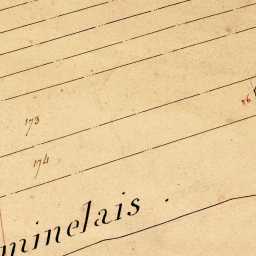 173
174
minelais .